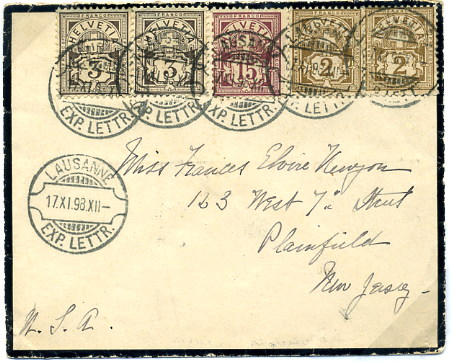 FRANCO FRANCO FRANCO
HELVETIA HELVETIA HELVETIA HELVETIA HELVETIA
3 3 15 2 2
LAUSANNE
EXP. LETTR. EXP. LETTR. EXP. LETTR. EXP. LETTR.
LAUSANNE
17.XI.98.XII-
EXP. LETTR.
Miss Frances Elvire
123 West 7th Street
Plainfield
New Jersey
U.S.A.